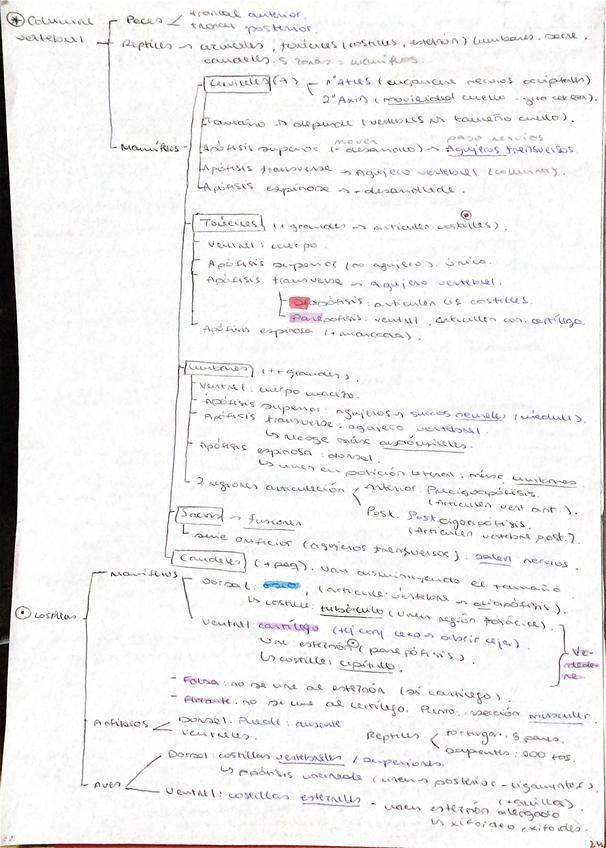 Columna vertebral
Peces troncal anterior.
troncal posterior.
Reptiles → cervicales, torácicas (costillas, esternón) lumbares, sacro,
caudales. 5 zonas = mamíferos.
Mamíferos
Cervicales (7) 1º Atlas (enganche nervios occipitales)
2º Axis (movilidad cuello - giro cabeza).
Tamaño → depende (vertebras vs tamaño cuello).
mover paso nervios
Apófisis superior (- desarrollo) → Agujeros transversos.
Apófisis transversa → Agujero vertebral (columna).
Apófisis espinosa → - desarrollada.
Torácicas (+ grandes → articulan costillas).
Ventral: cuerpo.
Apófisis superior (no agujero). único.
Apófisis transversa → Agujero vertebral.
Diapófisis: articulan las costillas.
Parapófisis: ventral, articulan con: cartílago.
Apófisis espinosa (+ marcada).
Lumbares (++ grandes).
Ventral: cuerpo macizo.
Apófisis superior: agujeros → surcos (médula).
Apófisis transversa: agujero vertebral.
↳ recoge músc
Apófisis espinosa: dorsal.
↳ unen en posición lateral: músc lumbares.
2 regiones articulación Anterior. Precigoapófisis.
(Articulan vert. ant.).
Post. Postcigoapófisis.
(Articulan vertebra post.).
Sacros → fusionan
serie orificios (agujeros transversos). salen nervios.
Caudales (+ peq). van disminuyendo el tamaño
Costillas
Mamíferos
Dorsal: óseo, (articula vértebra → diapófisis).
↳ costilla: tubérculo (unen región torácica).
Ventral: cartílago abrir caja).
une esternón (parapófisis).
↳ costilla: capítulo.
Verdaderas
- Falsa: no se une al esternón (sí cartílago).
- Flotante: no se une al cartílago. inserción muscular.
Anfibios Dorsal. Puede: ausente.
Ventrales.
Reptiles tortugas: 8 pares.
serpientes: 200 tos.
Aves
Dorsal: costillas vertebrales / superiores.
↳ apófisis (unen posterior - ligamentos).
Ventral: costillas esternales - unen esternón alargado
(+ quilla).
↳ xifoideo, xifoides.
24